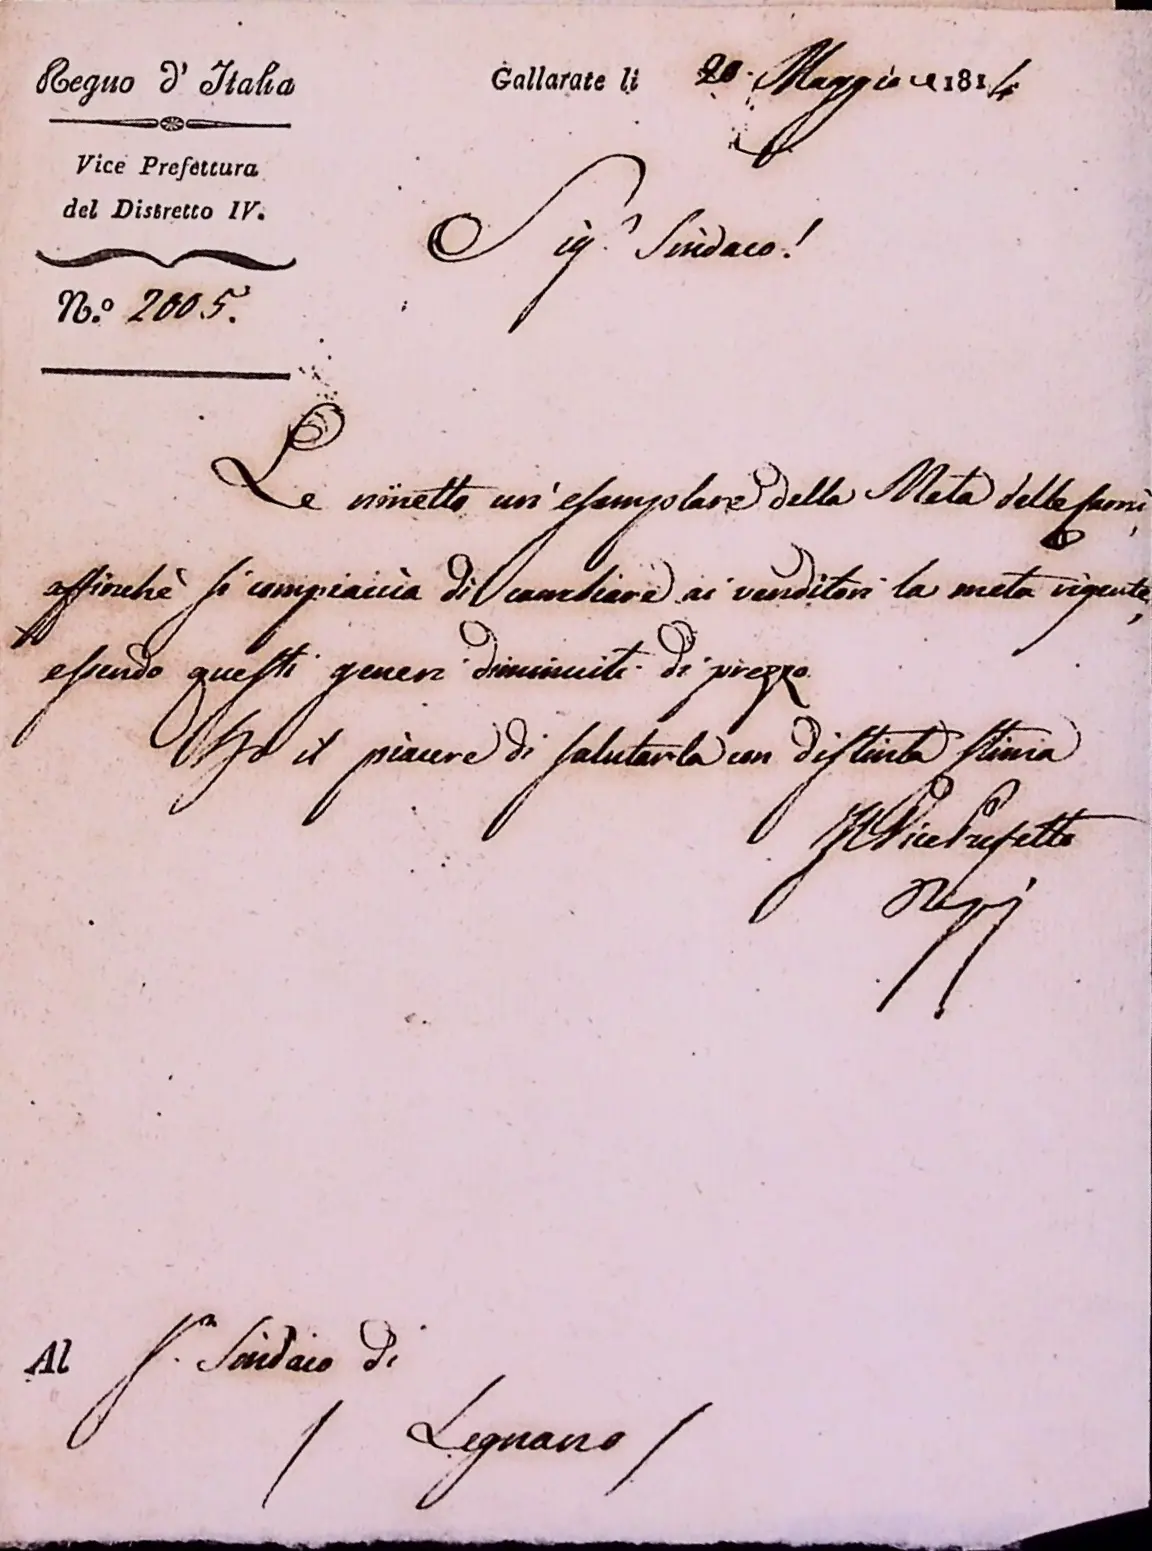 Regno d'Italia
Vice Prefettura
del Distretto IV.
N.º 2005.
Gallarate li 20. Maggio 1814
Sig.r Sindaco!
Le rimetto un'esemplare della Meta delle
affinchè si compiaccia di cambiare ai venditori la meta vigente,
essendo questi generi diminuiti di prezzo.
Ho il piacere di salutarla con distinta stima
Il Vice Prefetto
Al S.r Sindaco di
Legnano